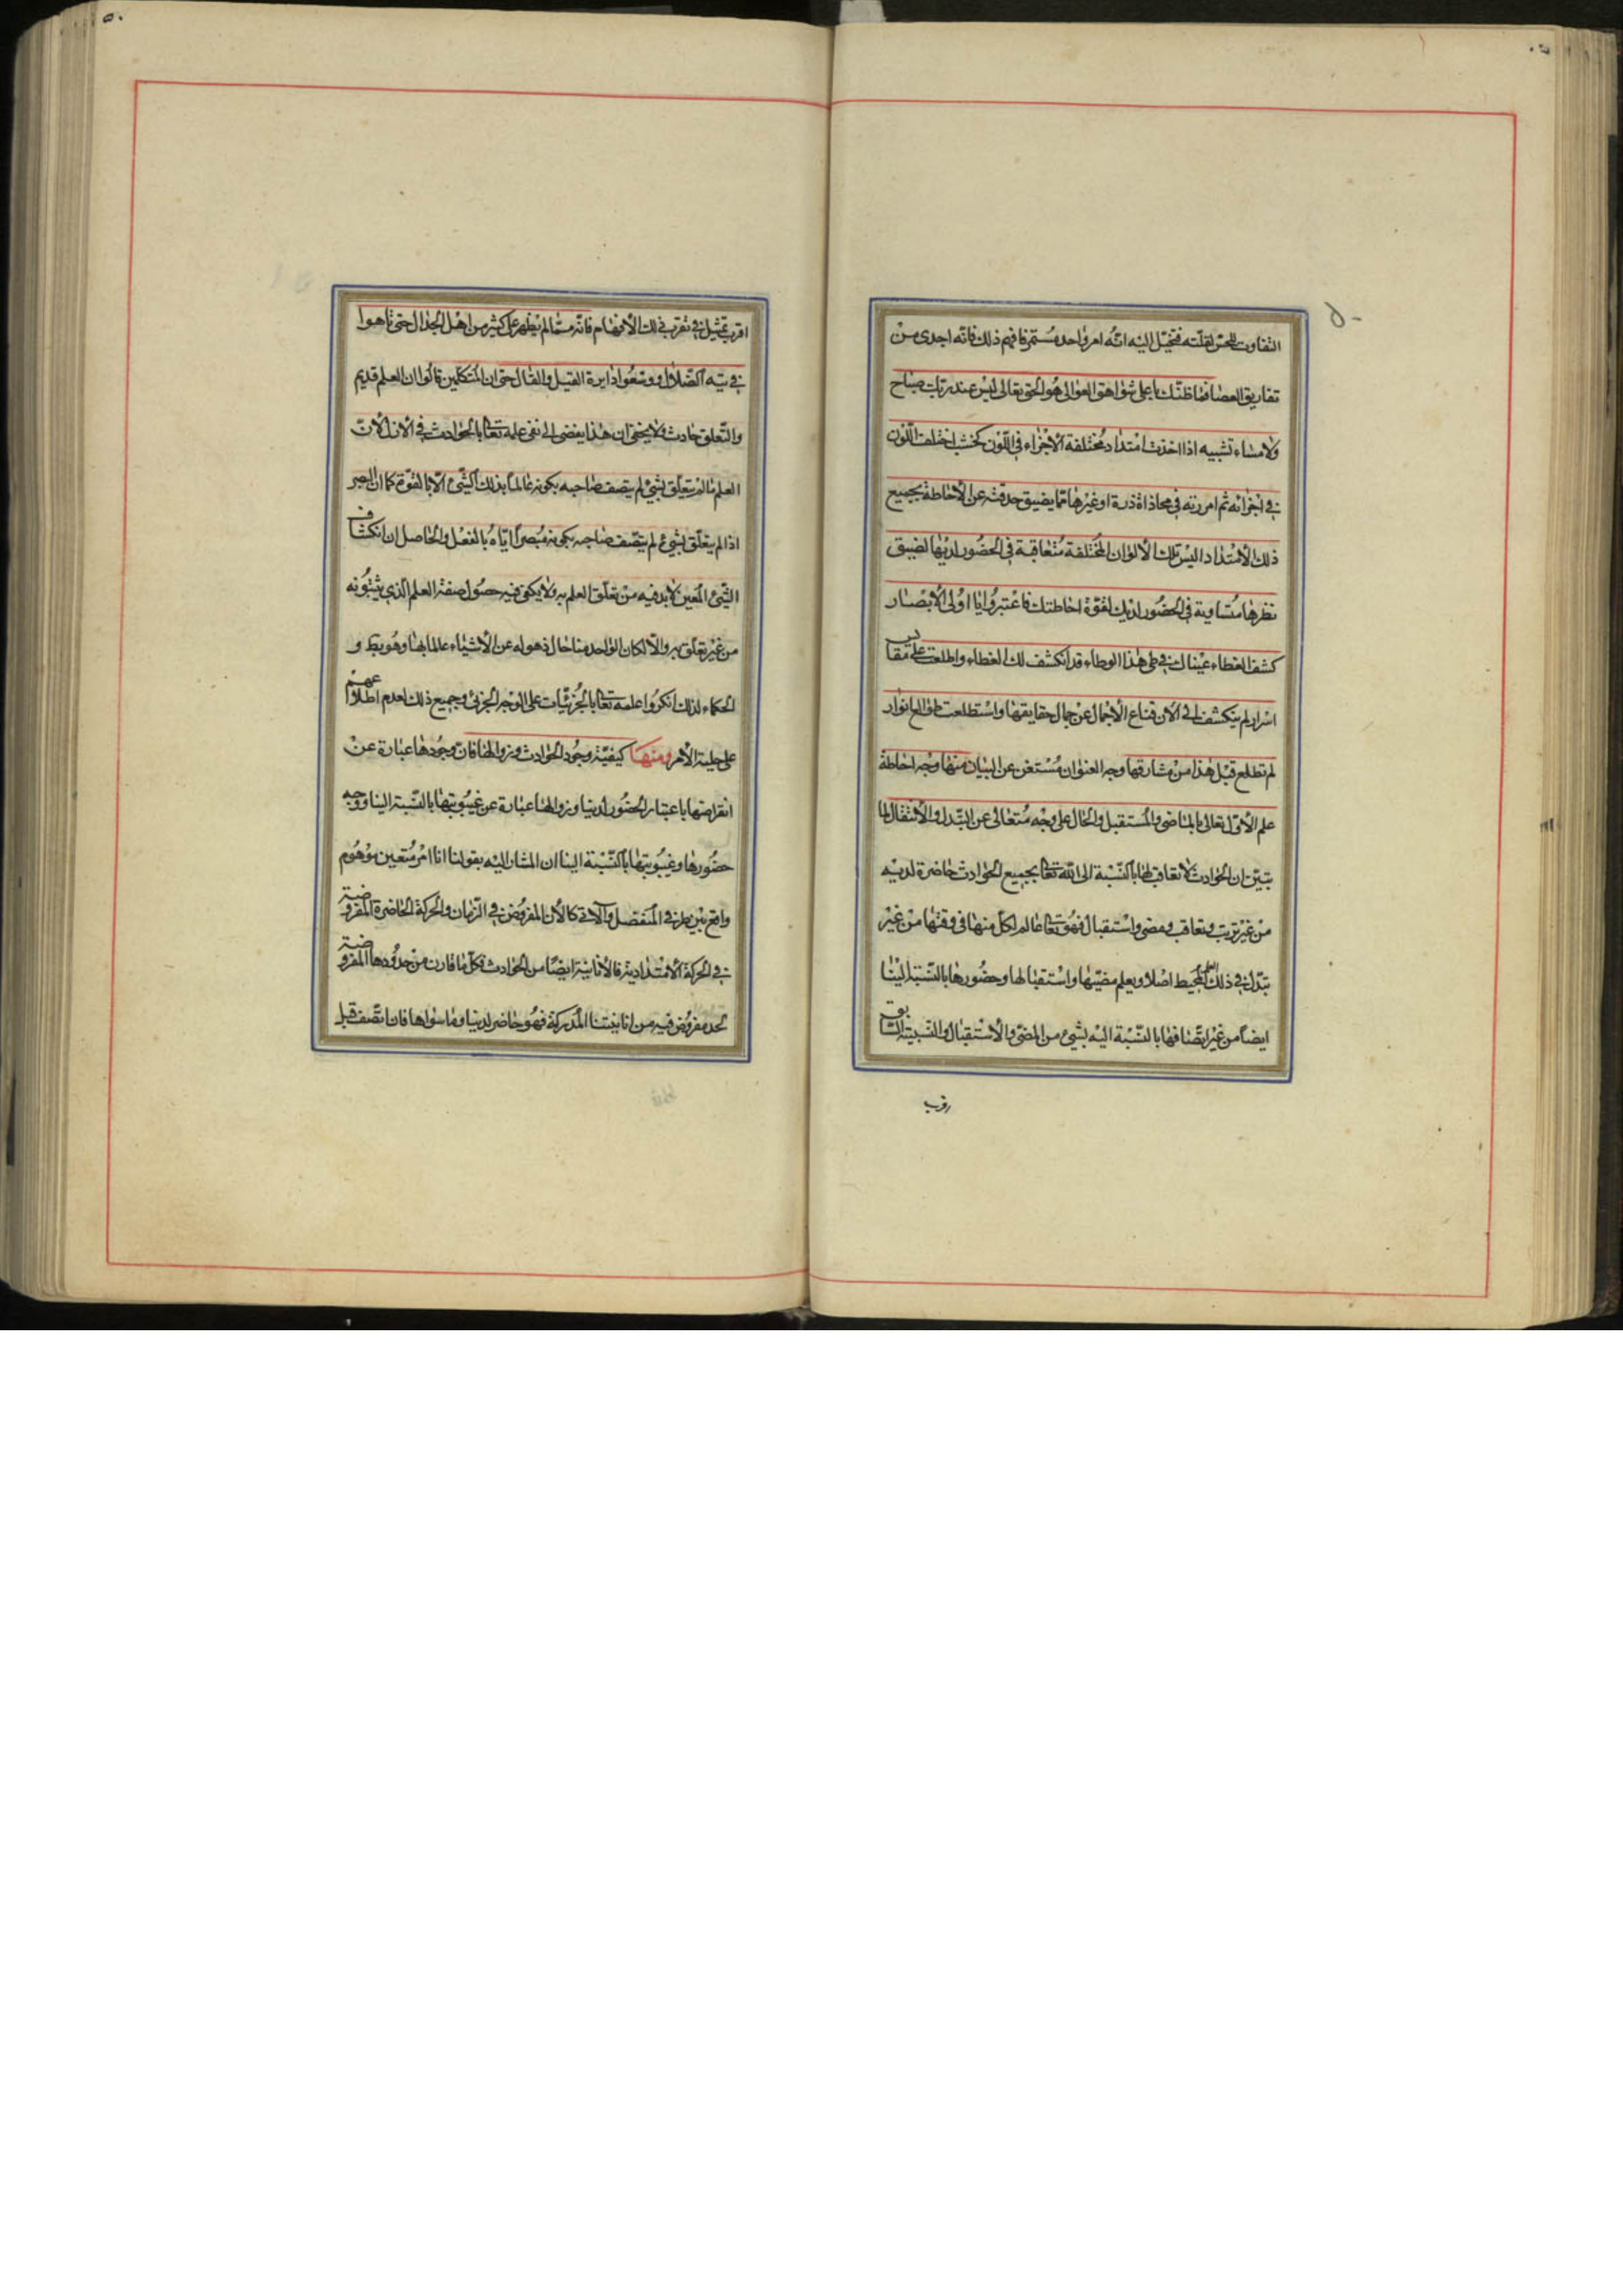 التفاوت للحس لقلته فتخيل اليه انه امر واحد مستمر فافهم ذلك فانه اجدى من
تفاريق العصا فما ظنك باعلى شواهق العوالى هو الحق تعالى ليس عند ربك صباح
ولا مساء تشبيه اذا اخذت امتداد مختلفة الأجزاء فى اللون كخشب اختلف اللون
فى اجزائه ثم امررته فى محاذاة ذرة او غيرها مما يضيق حدقته عن الاحاطة بجميع
ذلك الامتداد اليس تلك الالوان المختلفة متعاقبة فى الحضور لديها لضيق
نظرها متساوية فى الحضور لديك لقوة احاطتك فاعتبروا يا اولى الأبصار
كشف الغطاء عيناك فى طى هذا الوطاء قد انكشف لك الغطاء واطلعت على مقابس
اسرار لم ينكشف الى الآن قناع الاجمال عن جمال حقايقها واستطلعت طوالع انوار
لم تطلع قبل هذا من مشارقها وجه العنوان مستغن عن البيان منها وجه احاطة
علم الاول تعالى بالماضى والمستقبل والحال على وجه متعالى عن التبدل والانتقال لما
تبين ان الحوادث لا تعاقب لها بالنسبة الى الله تعا بجميع الحوادث حاضرة لديه
من غير ترتب وتعاقب ومضى واستقبال فهو تعا عالم لكل منها فى وقتها من غير
تبدل فى ذلك العلم المحيط اصلا ويعلم مضيتها واستقبالها وحضورها بالنسبة الينا
ايضا من غير اتصافها بالنسبة اليه بشئ من المضى والاستقبال والتشبيه السابق
رقرب
اقرب تمثيل فى تقرب ذلك الأفهام فانه مما لم يظهر على كثير من اهل الجدال حتى تاهوا
فى تيه الضلال ووسعوا دايرة القيل والقال حتى ان المتكلمين قالوا ان العلم قديم
والتعلق حادث ولا يخفى ان هذا يفضى الى نفى علمه تعا بالحوادث فى الازل لان
العلم ما لم يتعلق بشئ لم يتصف صاحبه بكونه عالما بذلك الشئ الا بالقوة كما ان البصر
اذا لم يتعلق بشئ لم يتصف صاحبه بكونه مبصرا اياه بالفعل والحاصل ان انكشاف
الشئ المعين لا بد فيه من تعلق العلم به ولا يكفى فيه حصول صفة العلم الذى يثبتونه
من غير تعلق به والا لكان الواحد منا حال ذهوله عن الأشياء عالما بها وهو بط و
الحكماء لذلك انكروا علمه تعا بالجزئيات على الوجه الجزئى وجميع ذلك لعدم اطلاعهم
على جلية الأمر ومنها كيفية وجود الحوادث وزوالها فان وجودها عبارة عن
انقراضها باعتبار الحضور لدينا وزوالها عبارة عن غيبوبتها بالنسبة الينا ووجه
حضورها وغيبوبتها بالنسبة الينا ان المشار اليه بقولنا انا امر متعين موهوم
واقع بين طرفى المنفصل والآتى كالآن المفروض فى الزمان والحركة الحاضرة المفروضة
فى الحركة الامتدادية فالانانية ايضا من الحوادث فكل ما قارن من حدودها المفروضة
لحد مفروض فيه من انانيتنا المدركة فهو حاضر لدينا وما سواها فان اتصف قبل